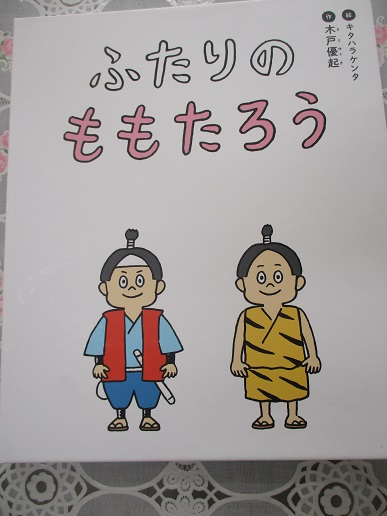 ふたりの
ももたろう
作 木戸優起
絵 キタハラケンタ